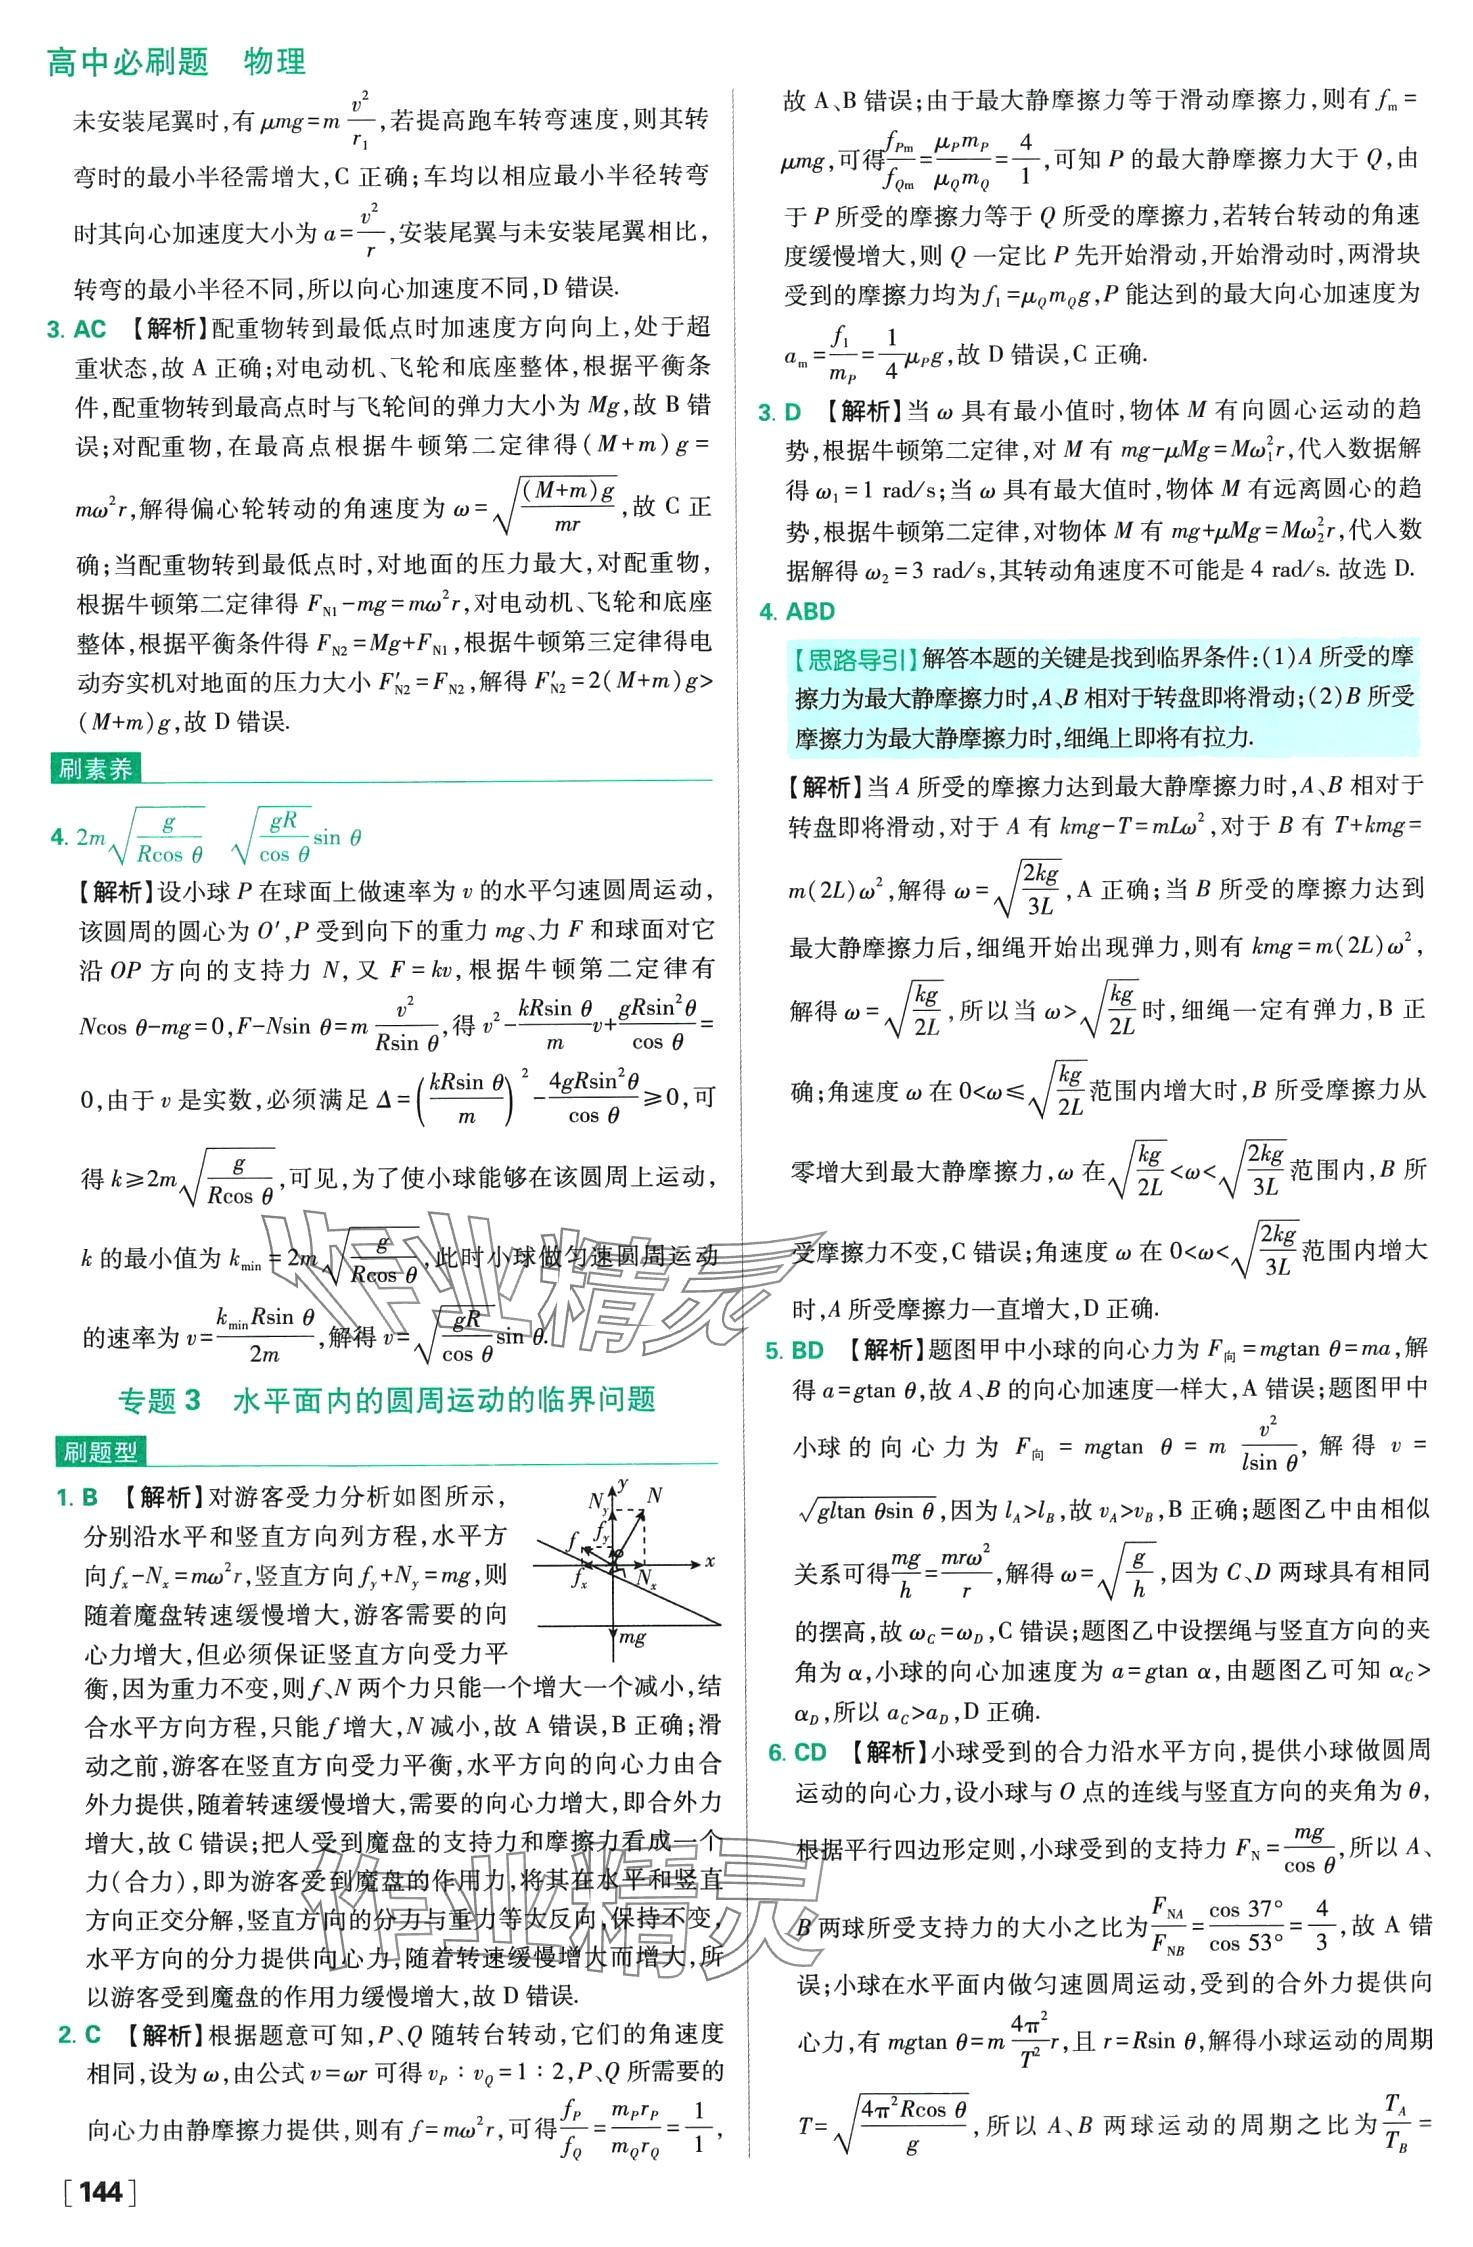 高中必刷题 物理
未安装尾翼时,有μmg=m v²/r₁,若提高跑车转弯速度,则其转
弯时的最小半径需增大,C 正确;车均以相应最小半径转弯
时其向心加速度大小为 a=v²/r,安装尾翼与未安装尾翼相比,
转弯的最小半径不同,所以向心加速度不同,D 错误.
3. AC 【解析】配重物转到最低点时加速度方向向上,处于超
重状态,故 A 正确;对电动机、飞轮和底座整体,根据平衡条
件,配重物转到最高点时与飞轮间的弹力大小为 Mg,故 B 错
误;对配重物,在最高点根据牛顿第二定律得(M+m)g=
mω²r,解得偏心轮转动的角速度为 ω=√((M+m)g/mr),故 C 正
确;当配重物转到最低点时,对地面的压力最大,对配重物,
根据牛顿第二定律得 F_N1-mg=mω²r,对电动机、飞轮和底座
整体,根据平衡条件得 F_N2=Mg+F_N1,根据牛顿第三定律得电
动夯实机对地面的压力大小 F′_N2=F_N2,解得 F′_N2=2(M+m)g>
(M+m)g,故 D 错误.
刷素养
4. 2m√(g/Rcos θ) √(gR/cos θ) sin θ
【解析】设小球 P 在球面上做速率为 v 的水平匀速圆周运动,
该圆周的圆心为 O′,P 受到向下的重力 mg、力 F 和球面对它
沿 OP 方向的支持力 N,又 F=kv,根据牛顿第二定律有
Ncos θ-mg=0,F-Nsin θ=m v²/Rsin θ,得 v²-(kRsin θ/m)v+gRsin²θ/cos θ=
0,由于 v 是实数,必须满足 Δ=(kRsin θ/m)²-4gRsin²θ/cos θ≥0,可
得 k≥2m√(g/Rcos θ),可见,为了使小球能够在该圆周上运动,
k 的最小值为 k_min=2m√(g/Rcos θ),此时小球做匀速圆周运动
的速率为 v=k_minRsin θ/2m,解得 v=√(gR/cos θ) sin θ.
专题 3 水平面内的圆周运动的临界问题
刷题型
1. B 【解析】对游客受力分析如图所示,
分别沿水平和竖直方向列方程,水平方
向 f_x-N_x=mω²r,竖直方向 f_y+N_y=mg,则
随着魔盘转速缓慢增大,游客需要的向
心力增大,但必须保证竖直方向受力平
y
N_y N
f f_y
x
f_x N_x
mg
衡,因为重力不变,则 f、N 两个力只能一个增大一个减小,结
合水平方向方程,只能 f 增大,N 减小,故 A 错误,B 正确;滑
动之前,游客在竖直方向受力平衡,水平方向的向心力由合
外力提供,随着转速缓慢增大,需要的向心力增大,即合外力
增大,故 C 错误;把人受到魔盘的支持力和摩擦力看成一个
力(合力),即为游客受到魔盘的作用力,将其在水平和竖直
方向正交分解,竖直方向的分力与重力等大反向,保持不变,
水平方向的分力提供向心力,随着转速缓慢增大而增大,所
以游客受到魔盘的作用力缓慢增大,故 D 错误.
2. C 【解析】根据题意可知,P、Q 随转台转动,它们的角速度
相同,设为 ω,由公式 v=ωr 可得 v_P∶v_Q=1∶2,P、Q 所需要的
向心力由静摩擦力提供,则有 f=mω²r,可得 f_P/f_Q=m_Pr_P/m_Qr_Q=1/1,
[144]
故 A、B 错误;由于最大静摩擦力等于滑动摩擦力,则有 f_m=
μmg,可得 f_Pm/f_Qm=μ_Pm_P/μ_Qm_Q=4/1,可知 P 的最大静摩擦力大于 Q,由
于 P 所受的摩擦力等于 Q 所受的摩擦力,若转台转动的角速
度缓慢增大,则 Q 一定比 P 先开始滑动,开始滑动时,两滑块
受到的摩擦力均为 f₁=μ_Qm_Qg,P 能达到的最大向心加速度为
a_m=f₁/m_P=1/4 μ_Pg,故 D 错误,C 正确.
3. D 【解析】当 ω 具有最小值时,物体 M 有向圆心运动的趋
势,根据牛顿第二定律,对 M 有 mg-μMg=Mω₁²r,代入数据解
得 ω₁=1 rad/s;当 ω 具有最大值时,物体 M 有远离圆心的趋
势,根据牛顿第二定律,对物体 M 有 mg+μMg=Mω₂²r,代入数
据解得 ω₂=3 rad/s,其转动角速度不可能是 4 rad/s. 故选 D.
4. ABD
【思路导引】解答本题的关键是找到临界条件:(1)A 所受的摩
擦力为最大静摩擦力时,A、B 相对于转盘即将滑动;(2)B 所受
摩擦力为最大静摩擦力时,细绳上即将有拉力.
【解析】当 A 所受的摩擦力达到最大静摩擦力时,A、B 相对于
转盘即将滑动,对于 A 有 kmg-T=mLω²,对于 B 有 T+kmg=
m(2L)ω²,解得 ω=√(2kg/3L),A 正确;当 B 所受的摩擦力达到
最大静摩擦力后,细绳开始出现弹力,则有 kmg=m(2L)ω²,
解得 ω=√(kg/2L),所以当 ω>√(kg/2L)时,细绳一定有弹力,B 正
确;角速度 ω 在 0<ω≤√(kg/2L)范围内增大时,B 所受摩擦力从
零增大到最大静摩擦力,ω 在√(kg/2L)<ω<√(2kg/3L)范围内,B 所
受摩擦力不变,C 错误;角速度 ω 在 0<ω<√(2kg/3L)范围内增大
时,A 所受摩擦力一直增大,D 正确.
5. BD 【解析】题图甲中小球的向心力为 F_向=mgtan θ=ma,解
得 a=gtan θ,故 A、B 的向心加速度一样大,A 错误;题图甲中
小球的向心力为 F_向=mgtan θ=m v²/lsin θ,解得 v=
√(gltan θsin θ),因为 l_A>l_B,故 v_A>v_B,B 正确;题图乙中由相似
关系可得 mg/h=mrω²/r,解得 ω=√(g/h),因为 C、D 两球具有相同
的摆高,故 ω_C=ω_D,C 错误;题图乙中设摆绳与竖直方向的夹
角为 α,小球的向心加速度为 a=gtan α,由题图乙可知 α_C>
α_D,所以 a_C>a_D,D 正确.
6. CD 【解析】小球受到的合力沿水平方向,提供小球做圆周
运动的向心力,设小球与 O 点的连线与竖直方向的夹角为 θ,
根据平行四边形定则,小球受到的支持力 F_N=mg/cos θ,所以 A、
B 两球所受支持力的大小之比为 F_NA/F_NB=cos 37°/cos 53°=4/3,故 A 错
误;小球在水平面内做匀速圆周运动,受到的合外力提供向
心力,有 mgtan θ=m 4π²/T² r,且 r=Rsin θ,解得小球运动的周期
T=√(4π²Rcos θ/g),所以 A、B 两球运动的周期之比为 T_A/T_B=
作业精灵
作业精灵